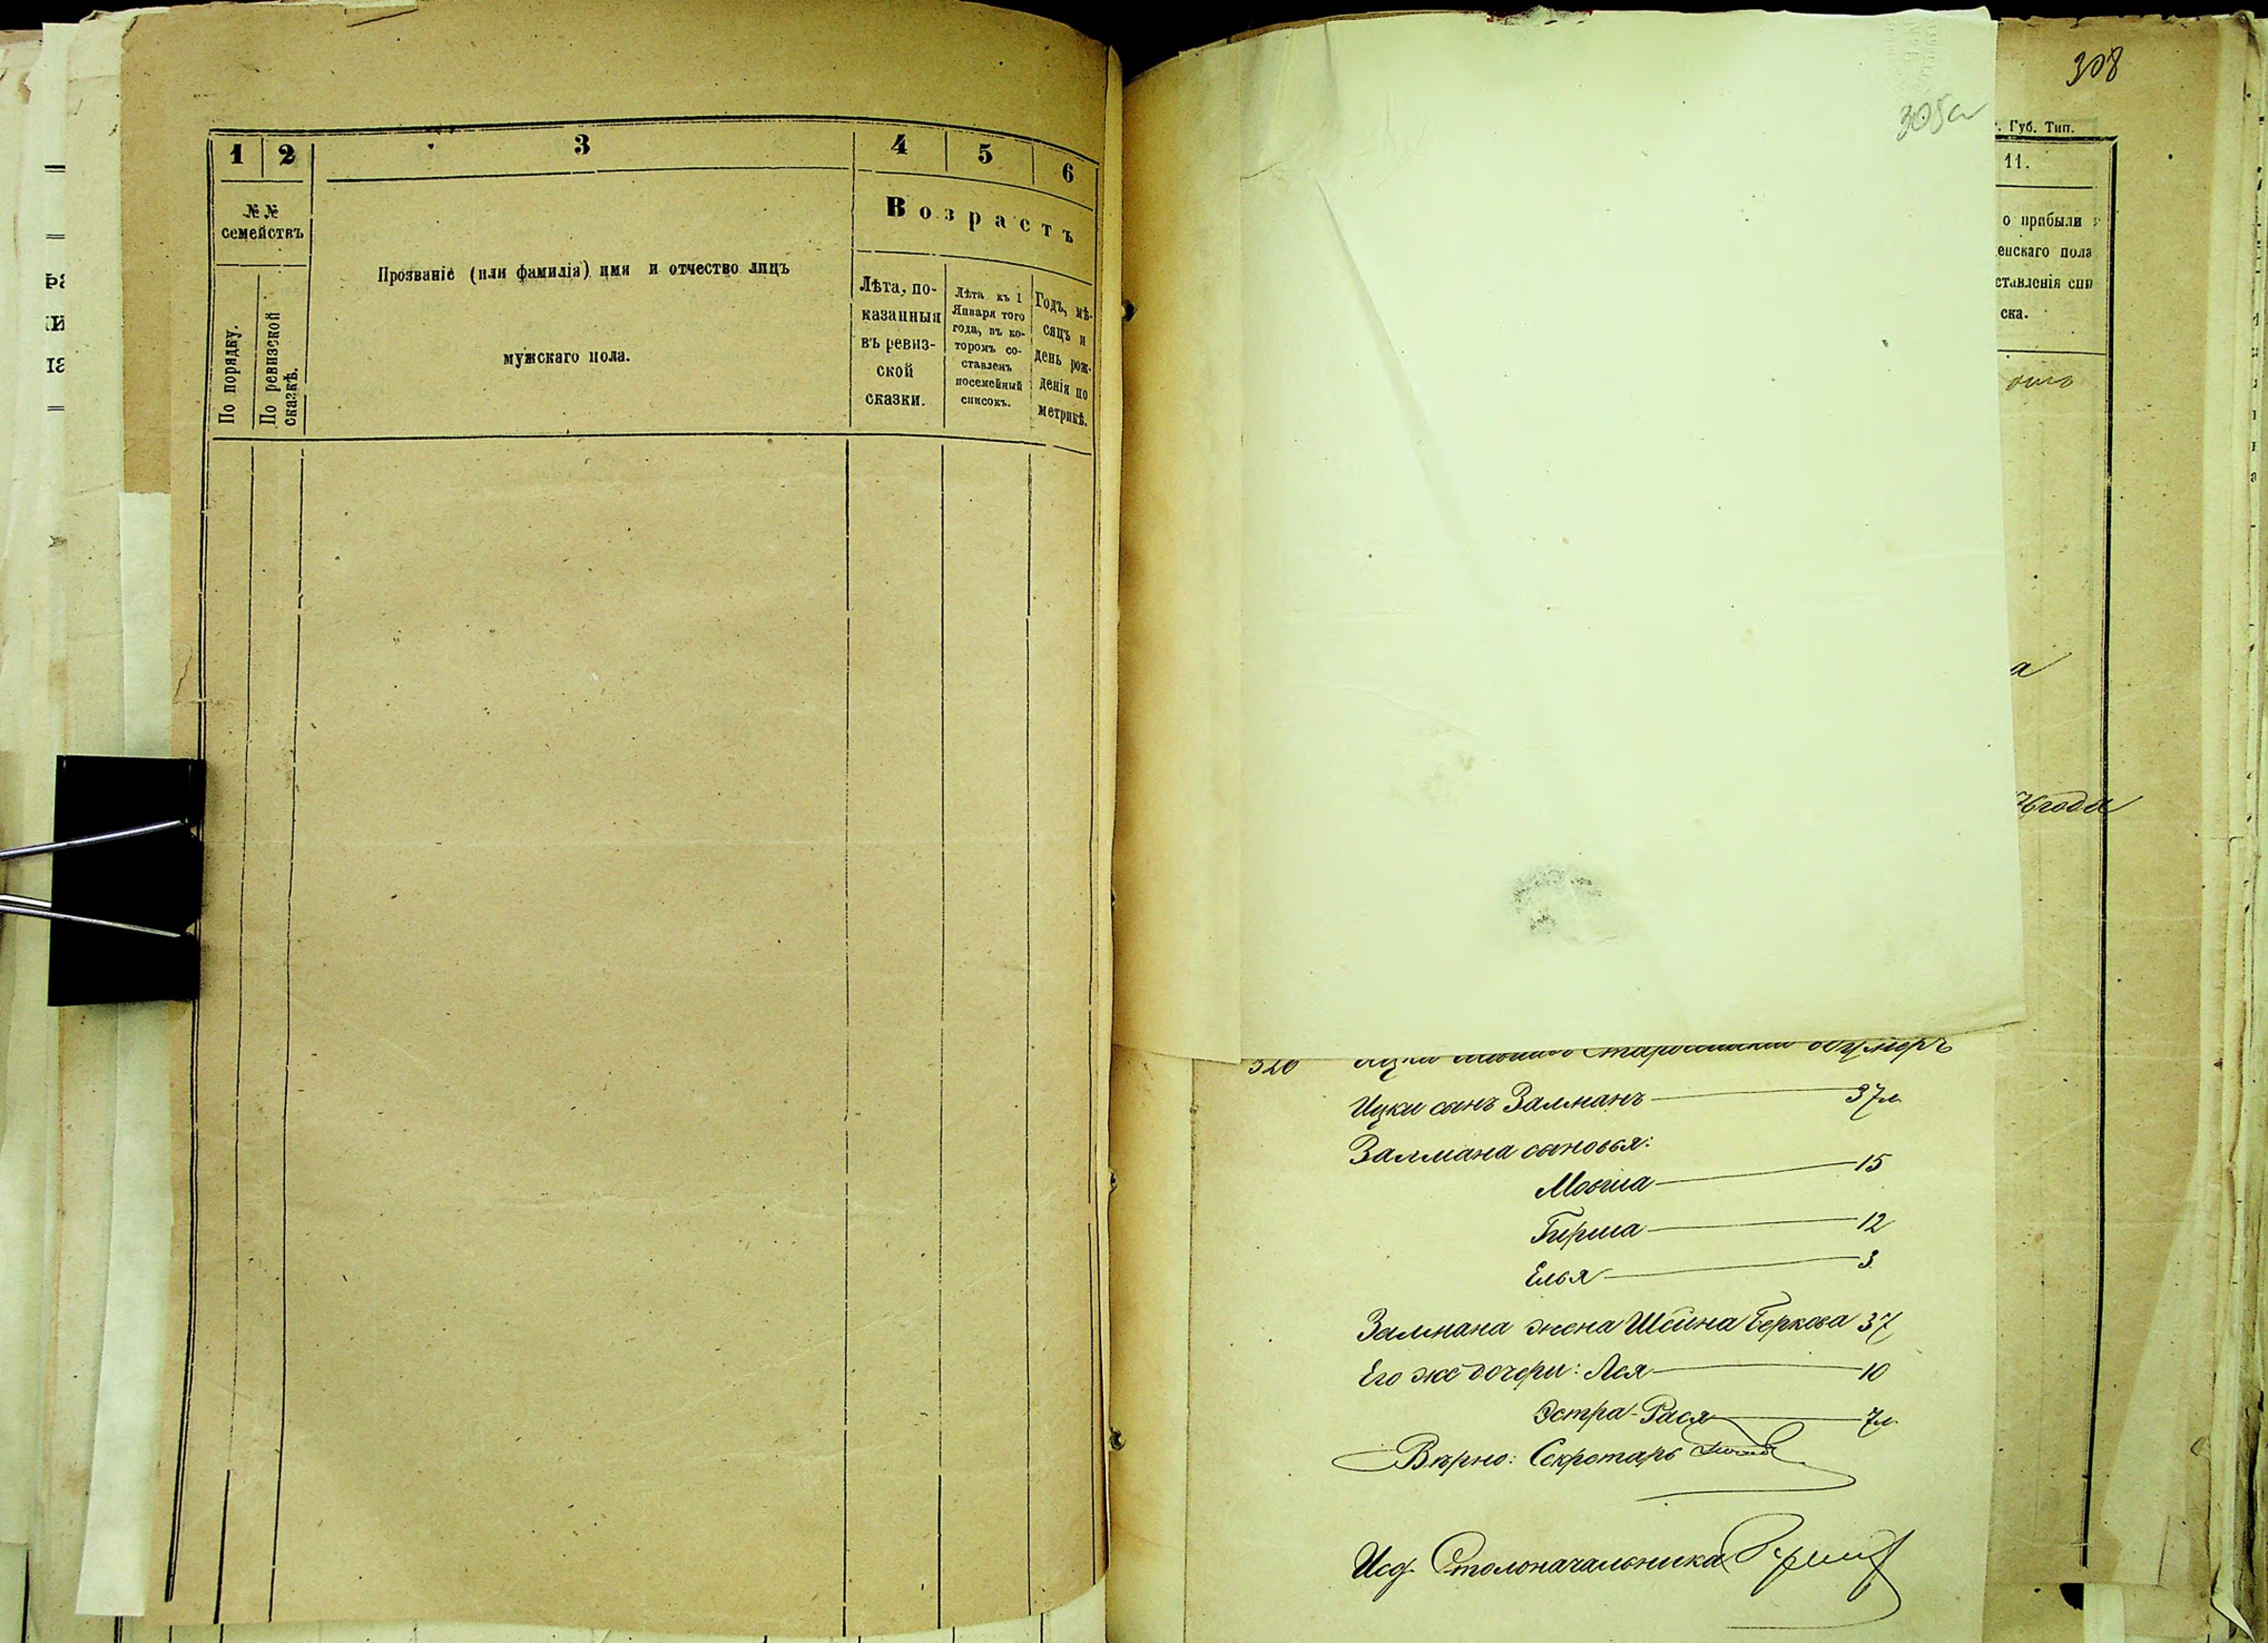 1 2 3 4 5 6
№№ семействъ
По порядку.
По ревизской сказкѣ.
Прозваніе (или фамилія) имя и отчество лицъ
мужскаго пола.
Возрастъ
Лѣта, по-
казанныя
въ ревиз-
ской
сказки.
Лѣта къ 1
Января того
года, въ ко-
торомъ со-
ставленъ
посемейный
списокъ.
Годъ, мѣ-
сяцъ и
день рож-
денія по
метрикѣ.
308
305а
Губ. Тип.
11.
о прибыли
енскаго пола
ставленія спи
ска.
а
76 года
326 Ицка Старосельскій умеръ
Ицки сынъ Залманъ 37 л.
Залмана сыновья:
Мовша 15
Гирша 12
Елья 3
Залмана жена Шейна Беркова 37
Его же дочери: Лея 10
Эстра-Рася 7 л.
Вѣрно: Секретарь
Исд. Столоначальника